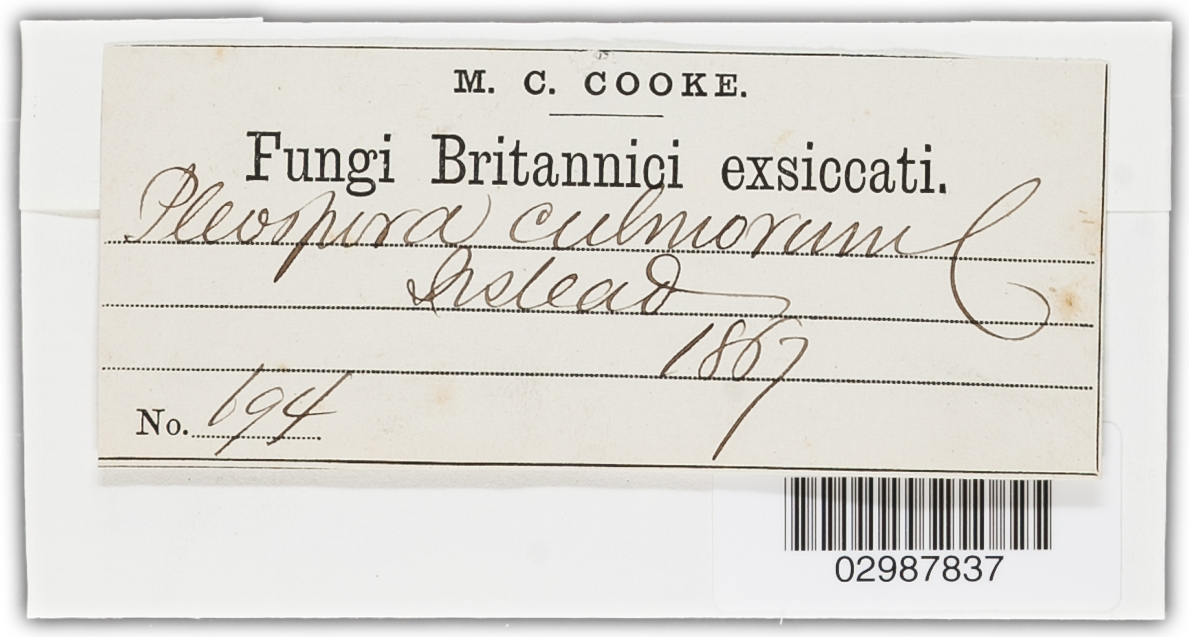 M. C. COOKE.
Fungi Britannici exsiccati.
Pleospora culmorum C
Irstead
1867
No. 694
02987837